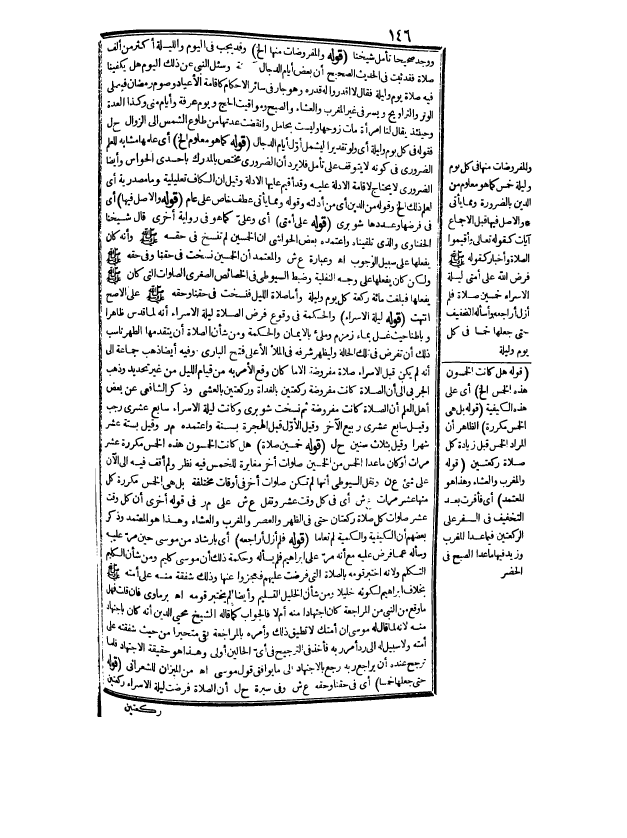 ١٤٦
ووجد صحيحا تأمل شيخنا (قوله والمفروضات منها الخ) وقد يجب فى اليوم والليلة أكثر من ألف
صلاة فقد ثبت فى الحديث الصحيح أن بعض أيام الدجال كسنة وسئل النبى عن ذلك اليوم هل يكفينا
فيه صلاة يوم وليلة فقال لا اقدروا له قدره وهو جار فى سائر الاحكام كاقامة الأعياد وصوم رمضان فيصلى
الوتر والتراويح ويسر فى غير المغرب والعشاء والصبح ومواقيت الحج ويوم عرفة وأيام منى وكذا العدة
وحينئذ يقال لنا امرأة مات زوجها وليست بحامل وانقضت عدتها من طلوع الشمس الى الزوال ح ل
فقوله فى كل يوم وليلة أى ولو تقديرا ليشمل أوّل أيام الدجال (قوله كما هو معلوم الخ) أى علما مشابه للعلم
الضرورى فى كونه لا يتوقف على تأمل فلا يرد أن الضرورى مختص بالمدرك باحدى الحواس وأيضا
الضرورى لا يحتاج لاقامة الادلة عليه وقد أقيم عليها الادلة وقيل ان الكاف تعليلية وما مصدرية أى
لعلم ذلك الخ وقوله من الدين أى من أدلته وقوله ومما يأتى عطف خاص على عام (قوله والاصل فيها) أى
فى فرضها وعددها شوبرى (قوله على أمتى) أى وعلىّ كما هو فى رواية أخرى قال شيخنا
الحفناوى والذى تلقيناه واعتمده بعض الحواشى ان الخمسين لم تنسخ فى حقه ﷺ وأنه كان
يفعلها على سبيل الوجوب اه وعبارة ع ش والمعتمد أن الخمسين نسخت فى حقنا وفى حقه ﷺ
ولكن كان يفعلها على وجه النفلية وضبط السيوطى فى الخصائص الصغرى الصلوات التى كان ﷺ
يفعلها فبلغت مائة ركعة كل يوم وليلة وأما صلاة الليل فنسخت فى حقنا وحقه ﷺ على الاصح
انتهت (قوله ليلة الاسراء) والحكمة فى وقوع فرض الصلاة ليلة الاسراء أنه لما قدس ظاهرا
وباطنا حيث غسل بماء زمزم وملئ بالايمان والحكمة ومن شأن الصلاة أن يتقدمها الطهر ناسب
ذلك أن تفرض فى تلك الحالة وليظهر شرفه فى الملأ الأعلى فتح البارى وفيه أيضا ذهب جماعة الى
أنه لم يكن قبل الاسراء صلاة مفروضة الا ما كان وقع الأمر به من قيام الليل من غير تحديد وذهب
الحربى الى أن الصلاة كانت مفروضة ركعتين بالغداة وركعتين بالعشى وذكر الشافعى عن بعض
أهل العلم أن الصلاة كانت مفروضة ثم نسخت شوبرى وكانت ليلة الاسراء سابع عشرى رجب
وقيل سابع عشرى ربيع الآخر وقيل الأوّل قبل الهجرة بسنة واعتمده م ر وقيل بستة عشر
شهرا وقيل بثلاث سنين ح ل (قوله خمسين صلاة) هل كانت الخمسون هذه الخمس مكررة عشر
مرات أو كان ما عدا الخمس من الخمسين صلوات أخر مغايرة للخمس فيه نظر ولم أقف فيه الى الآن
على شئ ع ن ونقل السيوطى أنها لم تكن صلوات أخر فى أوقات مختلفة بل هى الخمس مكررة كل
منها عشر مرات ع ش أى فى كل وقت عشر ونقل ع ش على م ر فى قوله أخرى أن كل وقت
عشر صلوات كل صلاة ركعتان حتى فى الظهر والعصر والمغرب والعشاء وهذا هو المعتمد وذكر
بعضهم أن الكيفية والكمية لم نعلما (قوله فلم أزل أراجعه) أى بارشاد من موسى حين مرّ عليه
وسأله عما فرض عليه مع أنه مرّ على ابراهيم فلم يسأله وحكمة ذلك أن موسى كليم ومن شأن الكليم
التكلم ولانه اختبر قومه بالصلاة التى فرضت عليهم فعجزوا عنها وذلك شفقة منه على أمته ﷺ
بخلاف ابراهيم لكونه خليلا ومن شأن الخليل التسليم وأيضا لم يختبر قومه اه برماوى فان قلت فهل
ما وقع من النبى من المراجعة كان اجتهادا منه أم لا فالجواب كما قاله الشيخ محيى الدين أنه كان باجتهاد
منه لانه لما قال له موسى ان أمتك لا تطيق ذلك وأمره بالمراجعة بقى متحيرا من حيث شفقته على
أمته ولا سبيل له الى رد أمر ربه فأخذ فى الترجيح فى أىّ الحالين أولى وهذا هو حقيقة الاجتهاد فلما
ترجح عنده أن يراجع ربه رجع بالاجتهاد الى ما يوافق قول موسى اه من الميزان للشعرانى (قوله
حتى جعلها خمسا) أى فى حقنا وحقه ع ش وفى سيرة ح ل أن الصلاة فرضت ليلة الاسراء ركعتين
ركعتين
والمفروضات منها فى كل يوم
وليلة خمس كما هو معلوم من
الدين بالضرورة ومما يأتى
والاصل فيها قبل الاجماع
آيات كقوله تعالى أقيموا
الصلاة وأخبار كقوله ﷺ
فرض الله على أمتى ليلة
الاسراء خمسين صلاة فلم
أزل أراجعه وأسأله التخفيف
حتى جعلها خمسا فى كل
يوم وليلة
(قوله هل كانت الخمسون
هذه الخمس الخ) أى على
هذه الكيفية (قوله بل هى
الخمس مكررة) الظاهر أن
المراد الخمس قبل زيادة كل
صلاة ركعتين (قوله
والمغرب والعشاء وهذا هو
المعتمد) أى فأقرت بعد
التخفيف فى السفر على
الركعتين فيما عدا المغرب
وزيد فيها ما عدا الصبح فى
الحضر